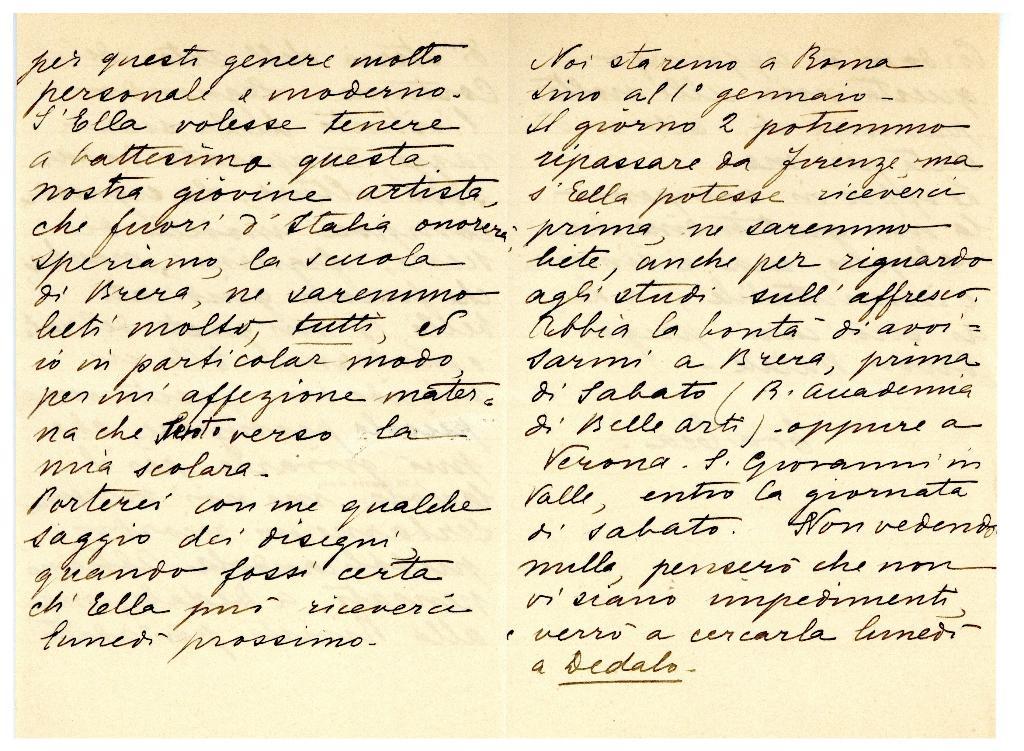 per questi genere molto
personale e moderno.
S'Ella volesse tenere
a battesimo questa
nostra giovine artista,
che fuori d'Italia onorerà,
speriamo, la scuola
di Brera, ne saremmo
lieti molto, tutti, ed
io in particolar modo,
per mi affezione mater=
na che sento verso la
mia scolara.
Porterei con me qualche
saggio dei disegni,
quando fossi certa
ch'Ella può riceverci
lunedì prossimo.
Noi staremo a Roma
sino al 1° gennaio -
Il giorno 2 potremmo
ripassare da Firenze, ma
s'Ella potesse riceverci
prima, ne saremmo
liete, anche per riguardo
agli studi sull'affresco.
Abbia la bontà di avvi=
sarmi a Brera, prima
di Sabato (R. Accademia
di Belle arti). oppure a
Verona. S. Giovanni in
Valle, entro la giornata
di sabato. Non vedendo
nulla, penserò che non
vi siano impedimenti,
e verrò a cercarla lunedì
a Dedalo.